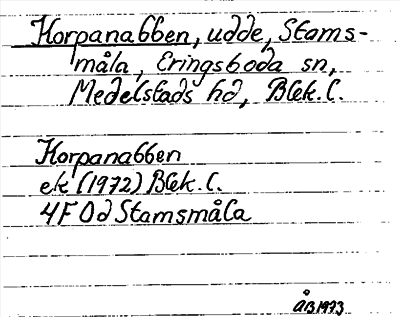 Korpanabben, udde, Stams-
måla, Eringsboda sn,
Medelstads hd, Blek. l.
Korpanabben
ek (1972) Blek. l.
4F 0d Stamsmåla
ÅB 1973